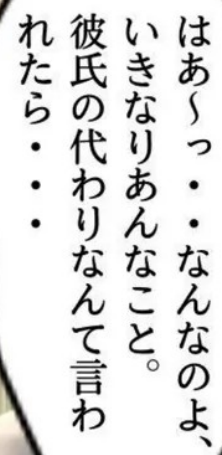 はあ～っ・・なんなのよ、
いきなりあんなこと。
彼氏の代わりなんて言わ
れたら・・・